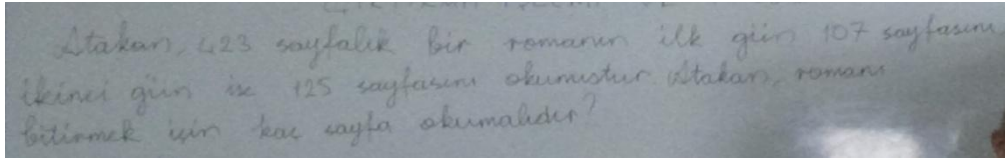 Atakan, 423 sayfalık bir romanın ilk gün 107 sayfasını,
ikinci gün ise 125 sayfasını okumuştur. Atakan, romanı
bitirmek için kaç sayfa okumalıdır?